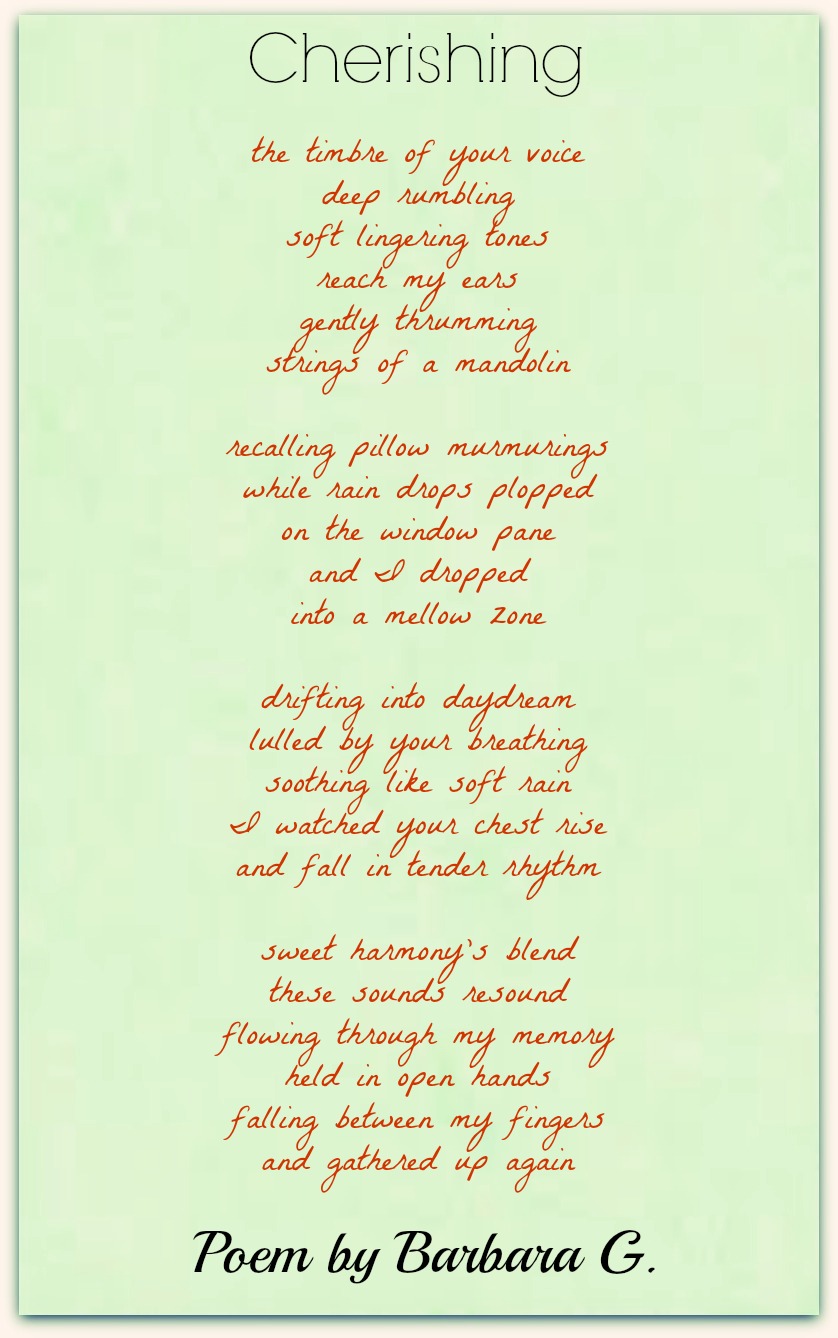 Cherishing
the timbre of your voice
deep rumbling
soft lingering tones
reach my ears
gently thrumming
strings of a mandolin
recalling pillow murmurings
while rain drops plopped
on the window pane
and I dropped
into a mellow zone
drifting into daydream
lulled by your breathing
soothing like soft rain
I watched your chest rise
and fall in tender rhythm
sweet harmony's blend
these sounds resound
flowing through my memory
held in open hands
falling between my fingers
and gathered up again
Poem by Barbara G.